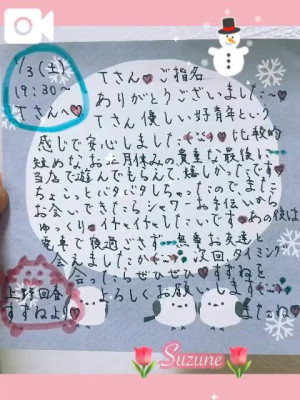 1/3(土)
19:30〜
Tさんへ♥
Tさん♥ご指名
ありがとうございました〜♥
Tさん優しい好青年という
感じで安心しました 比較的
短めなお正月休みの貴重な最後に
当店で遊んでもらえて嬉しかったです♥
ちょこっとバタバタしちゃったのでまた
お会いできたらシャワーお手伝いから
ゆっくり♥イチャイチャしたいです♥あの後は
電車で夜過ごさず 無事お友達と
会えましたか 次回タイミング
合ったらぜひぜひ♥すずねを
よろしくお願いします
上野回春
すずねより♥
またね♥
Suzune